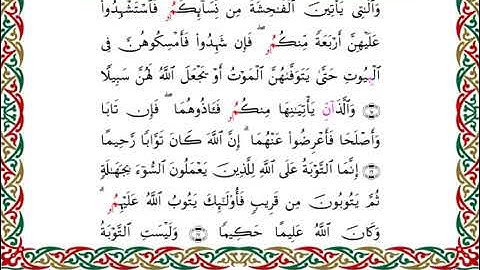 وَالَّٰتِي يَأْتِينَ الْفَٰحِشَةَ مِن نِّسَآئِكُمُۥ فَاسْتَشْهِدُوا
عَلَيْهِنَّ أَرْبَعَةً مِّنكُمُۥ ۖ فَإِن شَهِدُوا فَأَمْسِكُوهُنَّ فِي
الْبِيُوتِ حَتَّىٰ يَتَوَفَّىٰهُنَّ الْمَوْتُ أَوْ يَجْعَلَ اللَّهُ لَهُنَّ سَبِيلًا
وَالَّذَآنِّ يَأْتِيَٰنِهَا مِنكُمُۥ فَـَٔاذُوهُمَا ۖ فَإِن تَابَا
وَأَصْلَحَا فَأَعْرِضُوا عَنْهُمَآ ۗ إِنَّ اللَّهَ كَانَ تَوَّابًا رَّحِيمًا
إِنَّمَا التَّوْبَةُ عَلَى اللَّهِ لِلَّذِينَ يَعْمَلُونَ السُّوٓءَ بِجَهَٰلَةٍ
ثُمَّ يَتُوبُونَ مِن قَرِيبٍ فَأُولَٰٓئِكَ يَتُوبُ اللَّهُ عَلَيْهِمُۥ ۗ
وَكَانَ اللَّهُ عَلِيمًا حَكِيمًا وَلَيْسَتِ التَّوْبَةُ